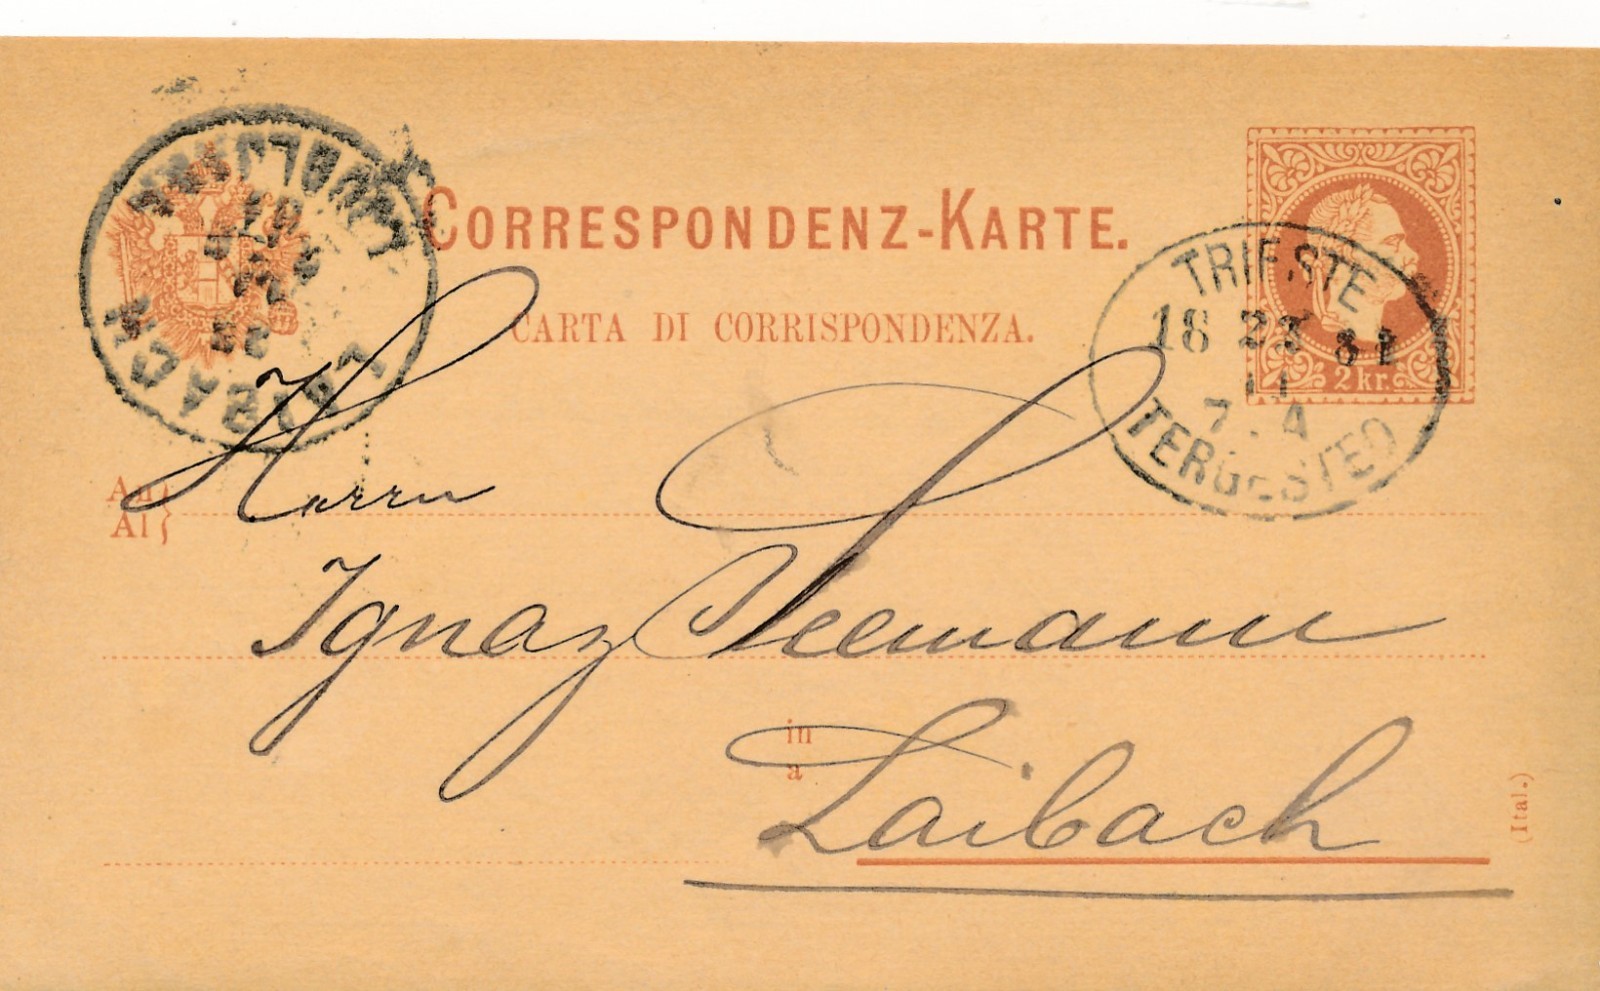 CORRESPONDENZ-KARTE.
CARTA DI CORRISPONDENZA.
2 kr.
TRIESTE
18 23 81
11
7. A
TERGESTEO
LJUBLJANA
LAIBACH
An
Al
Herrn
Ignaz Seemann
in
a
Laibach
(Ital.)